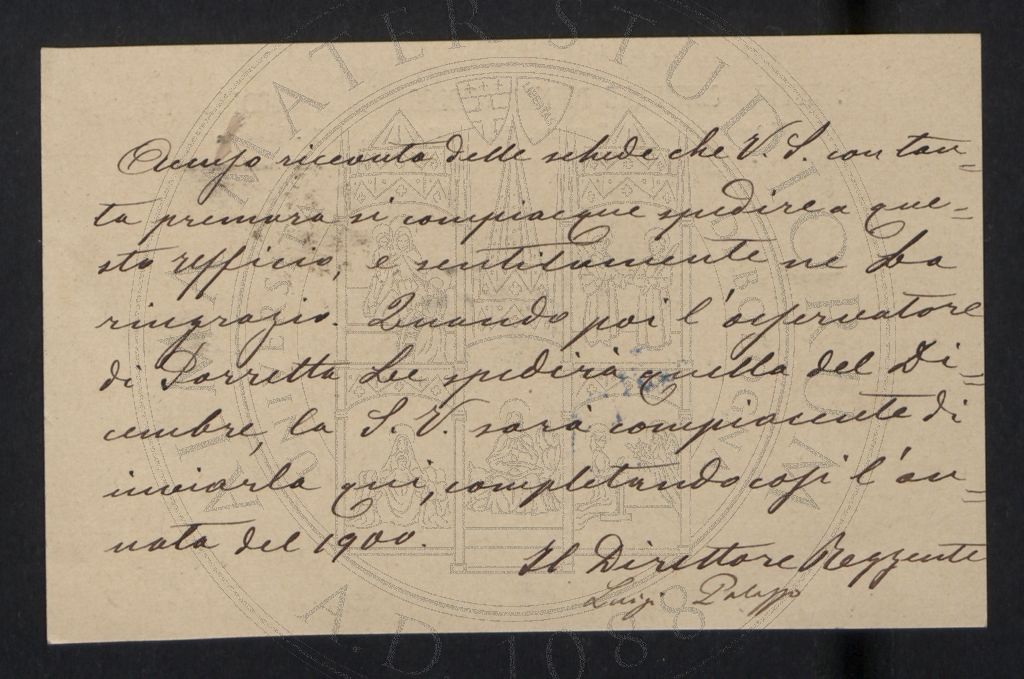 Accuso ricevuta delle schede che V. S. con tan-
ta premura si compiacque spedire a que-
sto ufficio, e sentitamente ne La
ringrazio. Quando poi l'osservatore
di Porretta Le spedirà quella del Di-
cembre, la S. V. sarà compiacente di
inviarla qui, completando così l'an-
nata del 1900.
Il Direttore Reggente
Luigi Palazzo
ALMA MATER STUDIORUM
A.D. 1088